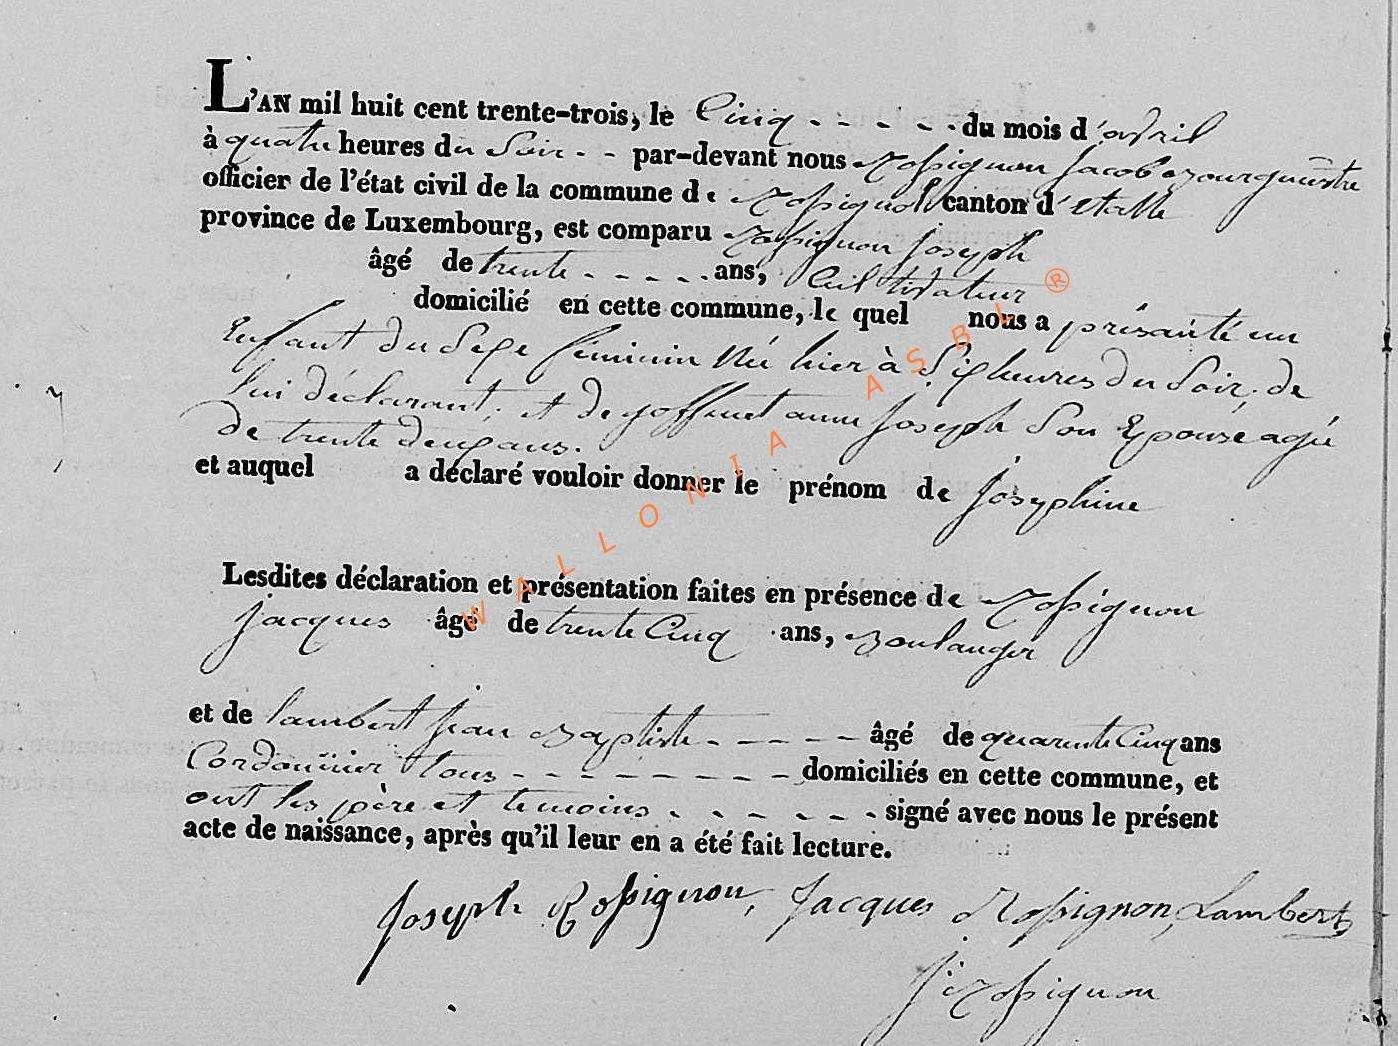 L'AN mil huit cent trente-trois, le Cinq - - - - - du mois d'avril
à quatre heures du Soir - - par-devant nous Rossignon Jacob Bourguemestre
officier de l'état civil de la commune de Rossignol canton d'Etalle
province de Luxembourg, est comparu Rossignon Joseph
âgé de trente - - - - - ans, Cultivateur
domicilié en cette commune, le quel nous a présenté un
Enfant du Sexe féminin Né hier à Six heures du Soir. de
lui déclarant. et de goffinet anne Joseph Son Epouse agée
de trente deux ans.
et auquel a déclaré vouloir donner le prénom de Joséphine
Lesdites déclaration et présentation faites en présence de Rossignon
Jacques âgé de trente Cinq ans, Boulanger
et de lambert Jean Baptiste - - - - - âgé de quarente Cinq ans
Cordonnier tous - - - - - - - - domiciliés en cette commune, et
ont les père et temoins - - - - - - signé avec nous le présent
acte de naissance, après qu'il leur en a été fait lecture.
Joseph Rossignon, Jacques Rossignon, Lambert
J. Rossignon
WALLONIA ASBL ®